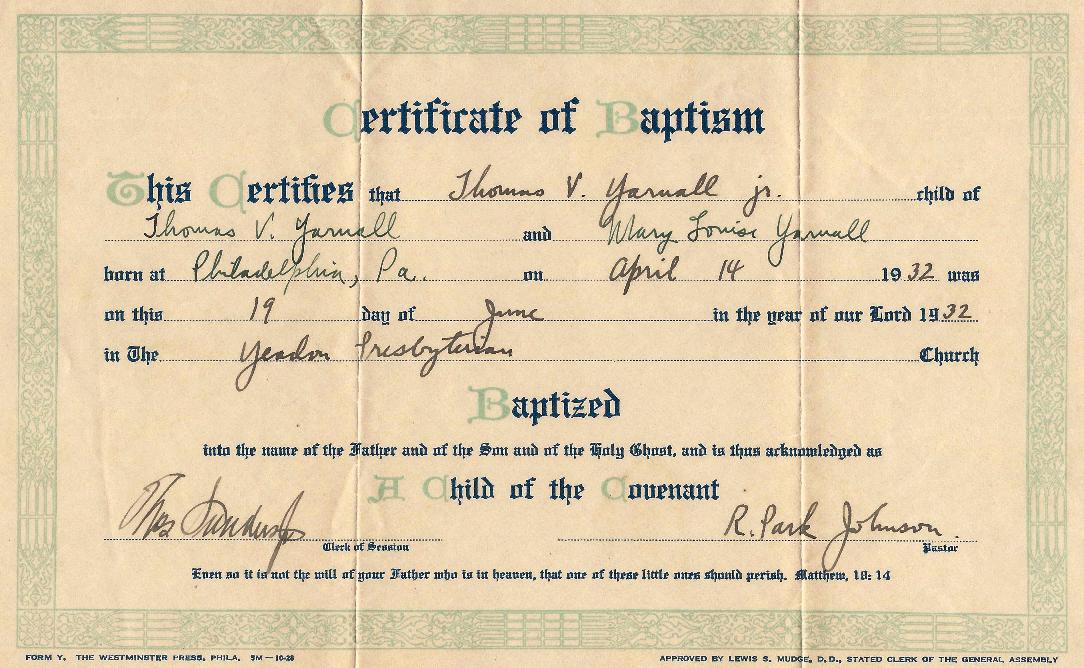 Certificate of Baptism
This Certifies that Thomas V. Yarnall jr. child of
Thomas V. Yarnall and Mary Louise Yarnall
born at Philadelphia, Pa. on April 14 1932 was
on this 19 day of June in the year of our Lord 1932
in The Yeadon Presbyterian Church
Baptized
into the name of the Father and of the Son and of the Holy Ghost, and is thus acknowledged as
A Child of the Covenant
Thos R. Park Johnson
Clerk of Session Pastor
Even so it is not the will of your Father who is in heaven, that one of these little ones should perish. Matthew, 18: 14
FORM Y. THE WESTMINSTER PRESS, PHILA. 5M—10-28 APPROVED BY LEWIS S. MUDGE, D.D., STATED CLERK OF THE GENERAL ASSEMBLY